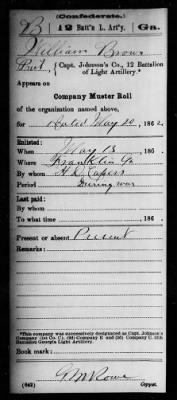 (Confederate.)
B 12 Batt'n L. Art'y. Ga.
William Brown
Pvt, Capt. Johnson's Co., 12 Battalion
of Light Artillery.*
Appears on
Company Muster Roll
of the organization named above,
for Dated May 20, 1862.
Enlisted:
When May 13, 186 .
Where Franklin Ga
By whom H. D. Capers
Period During war
Last paid:
By whom
To what time , 186 .
Present or absent Present
Remarks:
*This company was successively designated as Capt. Johnson's
Company
Battalion Georgia Light Artillery.
Book mark:
(642) G M Rowe
Copyist.